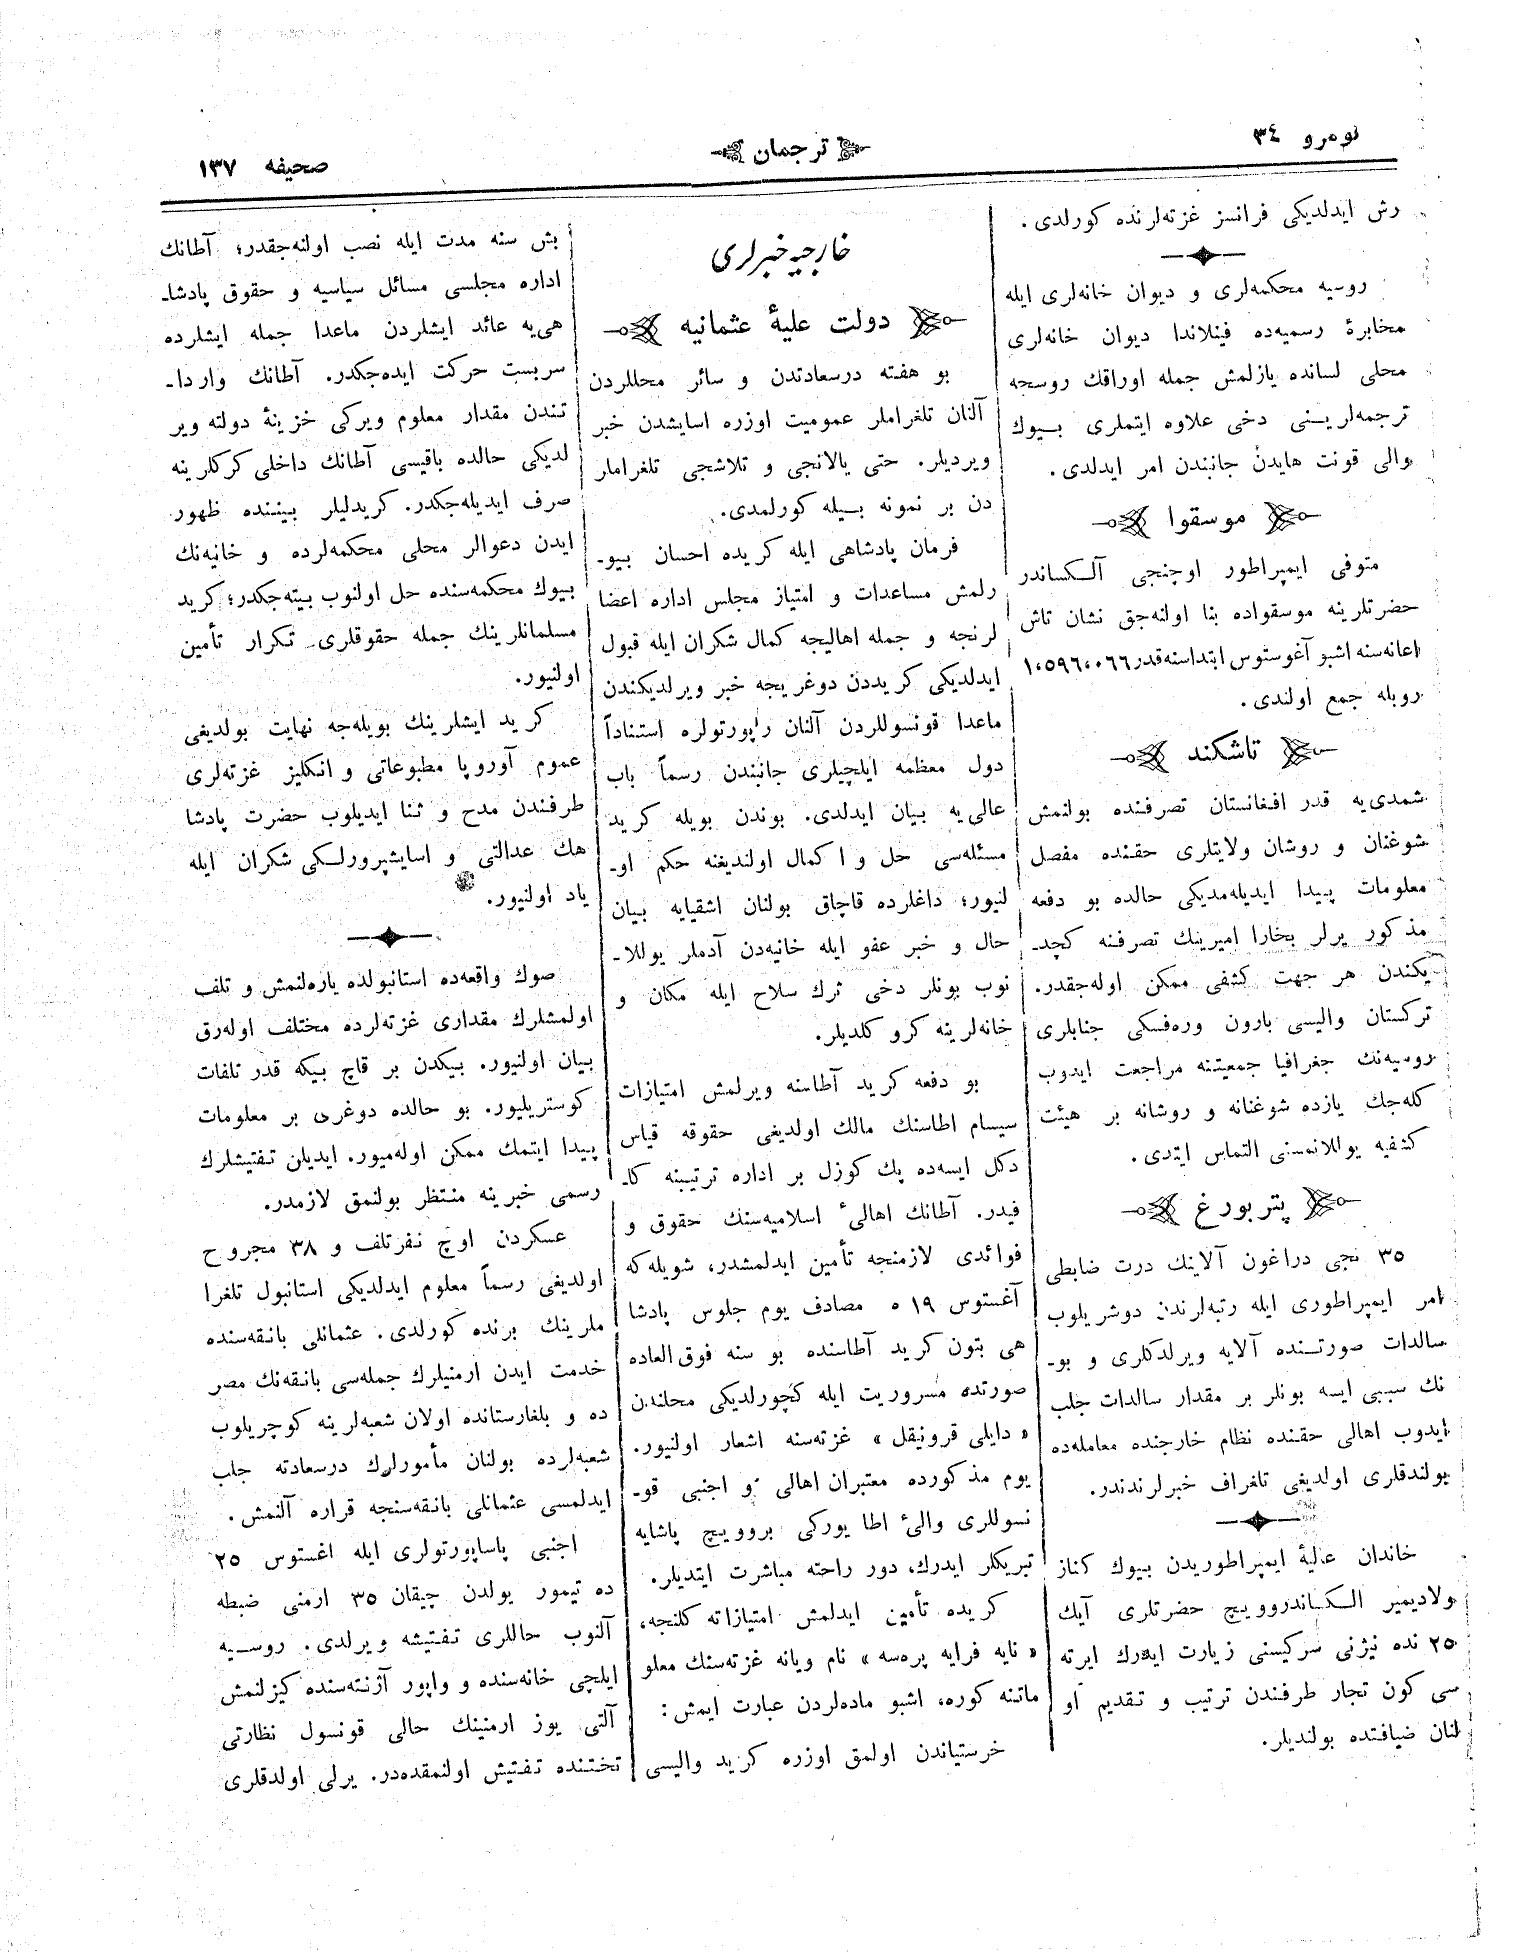 نومرو ٣٤
ترجمان
صحيفه ١٣٧
رش ايدلديكى فرانسز غزته‌لرنده كورلدى.
روسيه محكمه‌لرى و ديوان خانه‌لرى ايله
مخابرۀ رسميه‌ده فينلاندا ديوان خانه‌لرى
محلى لسانده يازلمش جمله اوراقك روسجه
ترجمه‌لرينى دخى علاوه ايتملرى بيوك
والى قونت هايدن جانبندن امر ايدلدى.
موسقوا
متوفى ايمپراطور اوچنجى آلكساندر
حضرتلرينه موسقواده بنا اولنه‌جق نشان تاش
اعانه‌سنه اشبو آغوستوس ابتداسنه‌قدر ١،٥٩٦،٠٦٦
روبله جمع اولندى.
تاشكند
شمدى‌يه قدر افغانستان تصرفنده بولنمش
شوغنان و روشان ولايتلرى حقنده مفصل
معلومات پيدا ايديله‌مديكى حالده بو دفعه
مذكور يرلر بخارا اميرينك تصرفنه كچد-
يكندن هر جهت كشفى ممكن اوله‌جقدر.
تركستان واليسى بارون وره‌فسكى جنابلرى
روسيه‌نك جغرافيا جمعيتنه مراجعت ايدوب
كله‌جك يازده شوغنانه و روشانه بر هيئت
كشفيه يوللانمسنى التماس ايتدى.
پتربورغ
٣٥ نجى دراغون آلاينك درت ضابطى
امر ايمپراطورى ايله رتبه‌لرندن دوشريلوب
سالدات صورتنده آلايه ويرلدكلرى و بو-
نك سببى ايسه بونلر بر مقدار سالدات جلب
ايدوب اهالى حقنده نظام خارجنده معامله‌ده
بولندقلرى اولديغى تلغراف خبرلرندندر.
خاندان عاليۀ ايمپراطوريدن بيوك كناز
ولاديمير الكساندروويچ حضرتلرى آيك
٢٥ نده نيژنى سركيسنى زيارت ايدرك ايرته
سى كون تجار طرفندن ترتيب و تقديم او
لنان ضيافتده بولنديلر.
خارجيه خبرلرى
دولت عليۀ عثمانيه
بو هفته درسعادتدن و سائر محللردن
آلنان تلغراملر عموميت اوزره اسايشدن خبر
ويرديلر. حتى يالانجى و تلاشجى تلغراملر
دن بر نمونه بيله كورلمدى.
فرمان پادشاهى ايله كريده احسان بيو-
رلمش مساعدات و امتياز مجلس اداره اعضا
لرنجه و جمله اهاليجه كمال شكران ايله قبول
ايدلديكى كريددن دوغريجه خبر ويرلديكندن
ماعدا قونسوللردن آلنان راپورتولره استناداً
دول معظمه ايلچيلرى جانبندن رسماً باب
عالى‌يه بيان ايدلدى. بوندن بويله كريد
مسئله‌سى حل و اكمال اولنديغنه حكم او-
لنيور؛ داغلرده قاچاق بولنان اشقيايه بيان
حال و خبر عفو ايله خانيه‌دن آدملر يوللا-
نوب بونلر دخى ترك سلاح ايله مكان و
خانه‌لرينه كرو كلديلر.
بو دفعه كريد آطاسنه ويرلمش امتيازات
سيسام اطاسنك مالك اولديغى حقوقه قياس
دكل ايسه‌ده پك كوزل بر اداره ترتيبنه كا-
فيدر. آطانك اهالىء اسلاميه‌سنك حقوق و
فوائدى لازمنجه تأمين ايدلمشدر، شويله‌كه
آغستوس ١٩ ه مصادف يوم جلوس پادشا
هى بتون كريد آطاسنده بو سنه فوق العاده
صورتده مسروريت ايله كچورلديكى محلندن
« دايلى قرونيقل » غزته‌سنه اشعار اولنيور.
يوم مذكورده معتبران اهالى و اجنبى قو-
نسوللرى والىء اطا يوركى بروويچ پاشايه
تبريكلر ايدرك، دور راحته مباشرت ايتديلر.
كريده تأمين ايدلمش امتيازاته كلنجه،
« نايه فرايه پره‌سه » نام ويانه غزته‌سنك معلو
ماتنه كوره، اشبو ماده‌لردن عبارت ايمش:
خرستياندن اولمق اوزره كريد واليسى
بش سنه مدت ايله نصب اولنه‌جقدر؛ آطانك
اداره مجلسى مسائل سياسيه و حقوق پادشا-
هى‌يه عائد ايشلردن ماعدا جمله ايشلرده
سربست حركت ايده‌جكدر. آطانك واردا-
تندن مقدار معلوم ويركى خزينۀ دولته وير
لديكى حالده باقيسى آطانك داخلى كركلرينه
صرف ايديله‌جكدر. كريدليلر بيننده ظهور
ايدن دعوالر محلى محكمه‌لرده و خانيه‌نك
بيوك محكمه‌سنده حل اولنوب بيته‌جكدر؛ كريد
مسلمانلرينك جمله حقوقلرى تكرار تأمين
اولنيور.
كريد ايشلرينك بويله‌جه نهايت بولديغى
عموم آوروپا مطبوعاتى و انكليز غزته‌لرى
طرفندن مدح و ثنا ايديلوب حضرت پادشا
هك عدالتى و اسايشپرورلكى شكران ايله
ياد اولنيور.
صوك واقعه‌ده استانبولده ياره‌لنمش و تلف
اولمشلرك مقدارى غزته‌لرده مختلف اوله‌رق
بيان اولنيور. بيكدن بر قاچ بيكه قدر تلفات
كوستريليور. بو حالده دوغرى بر معلومات
پيدا ايتمك ممكن اوله‌ميور. ايديلن تفتيشلرك
رسمى خبرينه منتظر بولنمق لازمدر.
عسكردن اوچ نفرتلف و ٣٨ مجروح
اولديغى رسماً معلوم ايدلديكى استانبول تلغرا
ملرينك برنده كورلدى. عثمانلى بانقه‌سنده
خدمت ايدن ارمنيلرك جمله‌سى بانقه‌نك مصر
ده و بلغارستانده اولان شعبه‌لرينه كوچريلوب
شعبه‌لرده بولنان مأمورلرك درسعادته جلب
ايدلمسى عثمانلى بانقه‌سنجه قراره آلنمش.
اجنبى پاساپورتولرى ايله اغستوس ٢٥
ده تيمور يولدن چيقان ٣٥ ارمنى ضبطه
آلنوب حاللرى تفتيشه ويرلدى. روسيه
ايلچى خانه‌سنده و واپور آژنته‌سنده كيزلنمش
آلتى يوز ارمنينك حالى قونسول نظارتى
تختنده تفتيش اولنمقده‌در. يرلى اولدقلرى